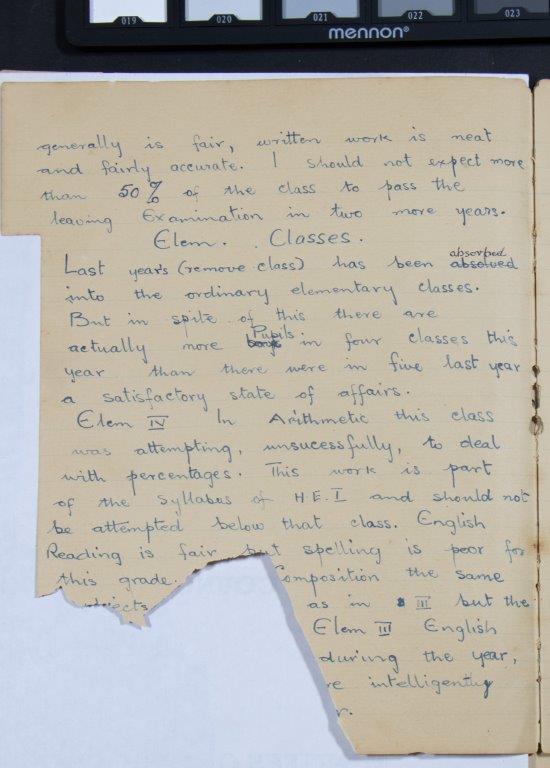 019 020 021 022 023
mennon®
generally is fair, written work is neat
and fairly accurate. I should not expect more
than 50% of the class to pass the
leaving Examination in two more years.
Elem. Classes.
Last year's (remove class) has been absorbed absolved
into the ordinary elementary classes.
But in spite of this there are
actually more Pupils boys in four classes this
year than there were in five last year
a satisfactory state of affairs.
Elem IV In Arithmetic this class
was attempting, unsucessfully, to deal
with percentages. This work is part
of the Syllabus of H.E.I and should not
be attempted below that class. English
Reading is fair but spelling is poor for
this grade. Composition the same
as in III but the
Elem III English
during the year,
re intelligently
r.